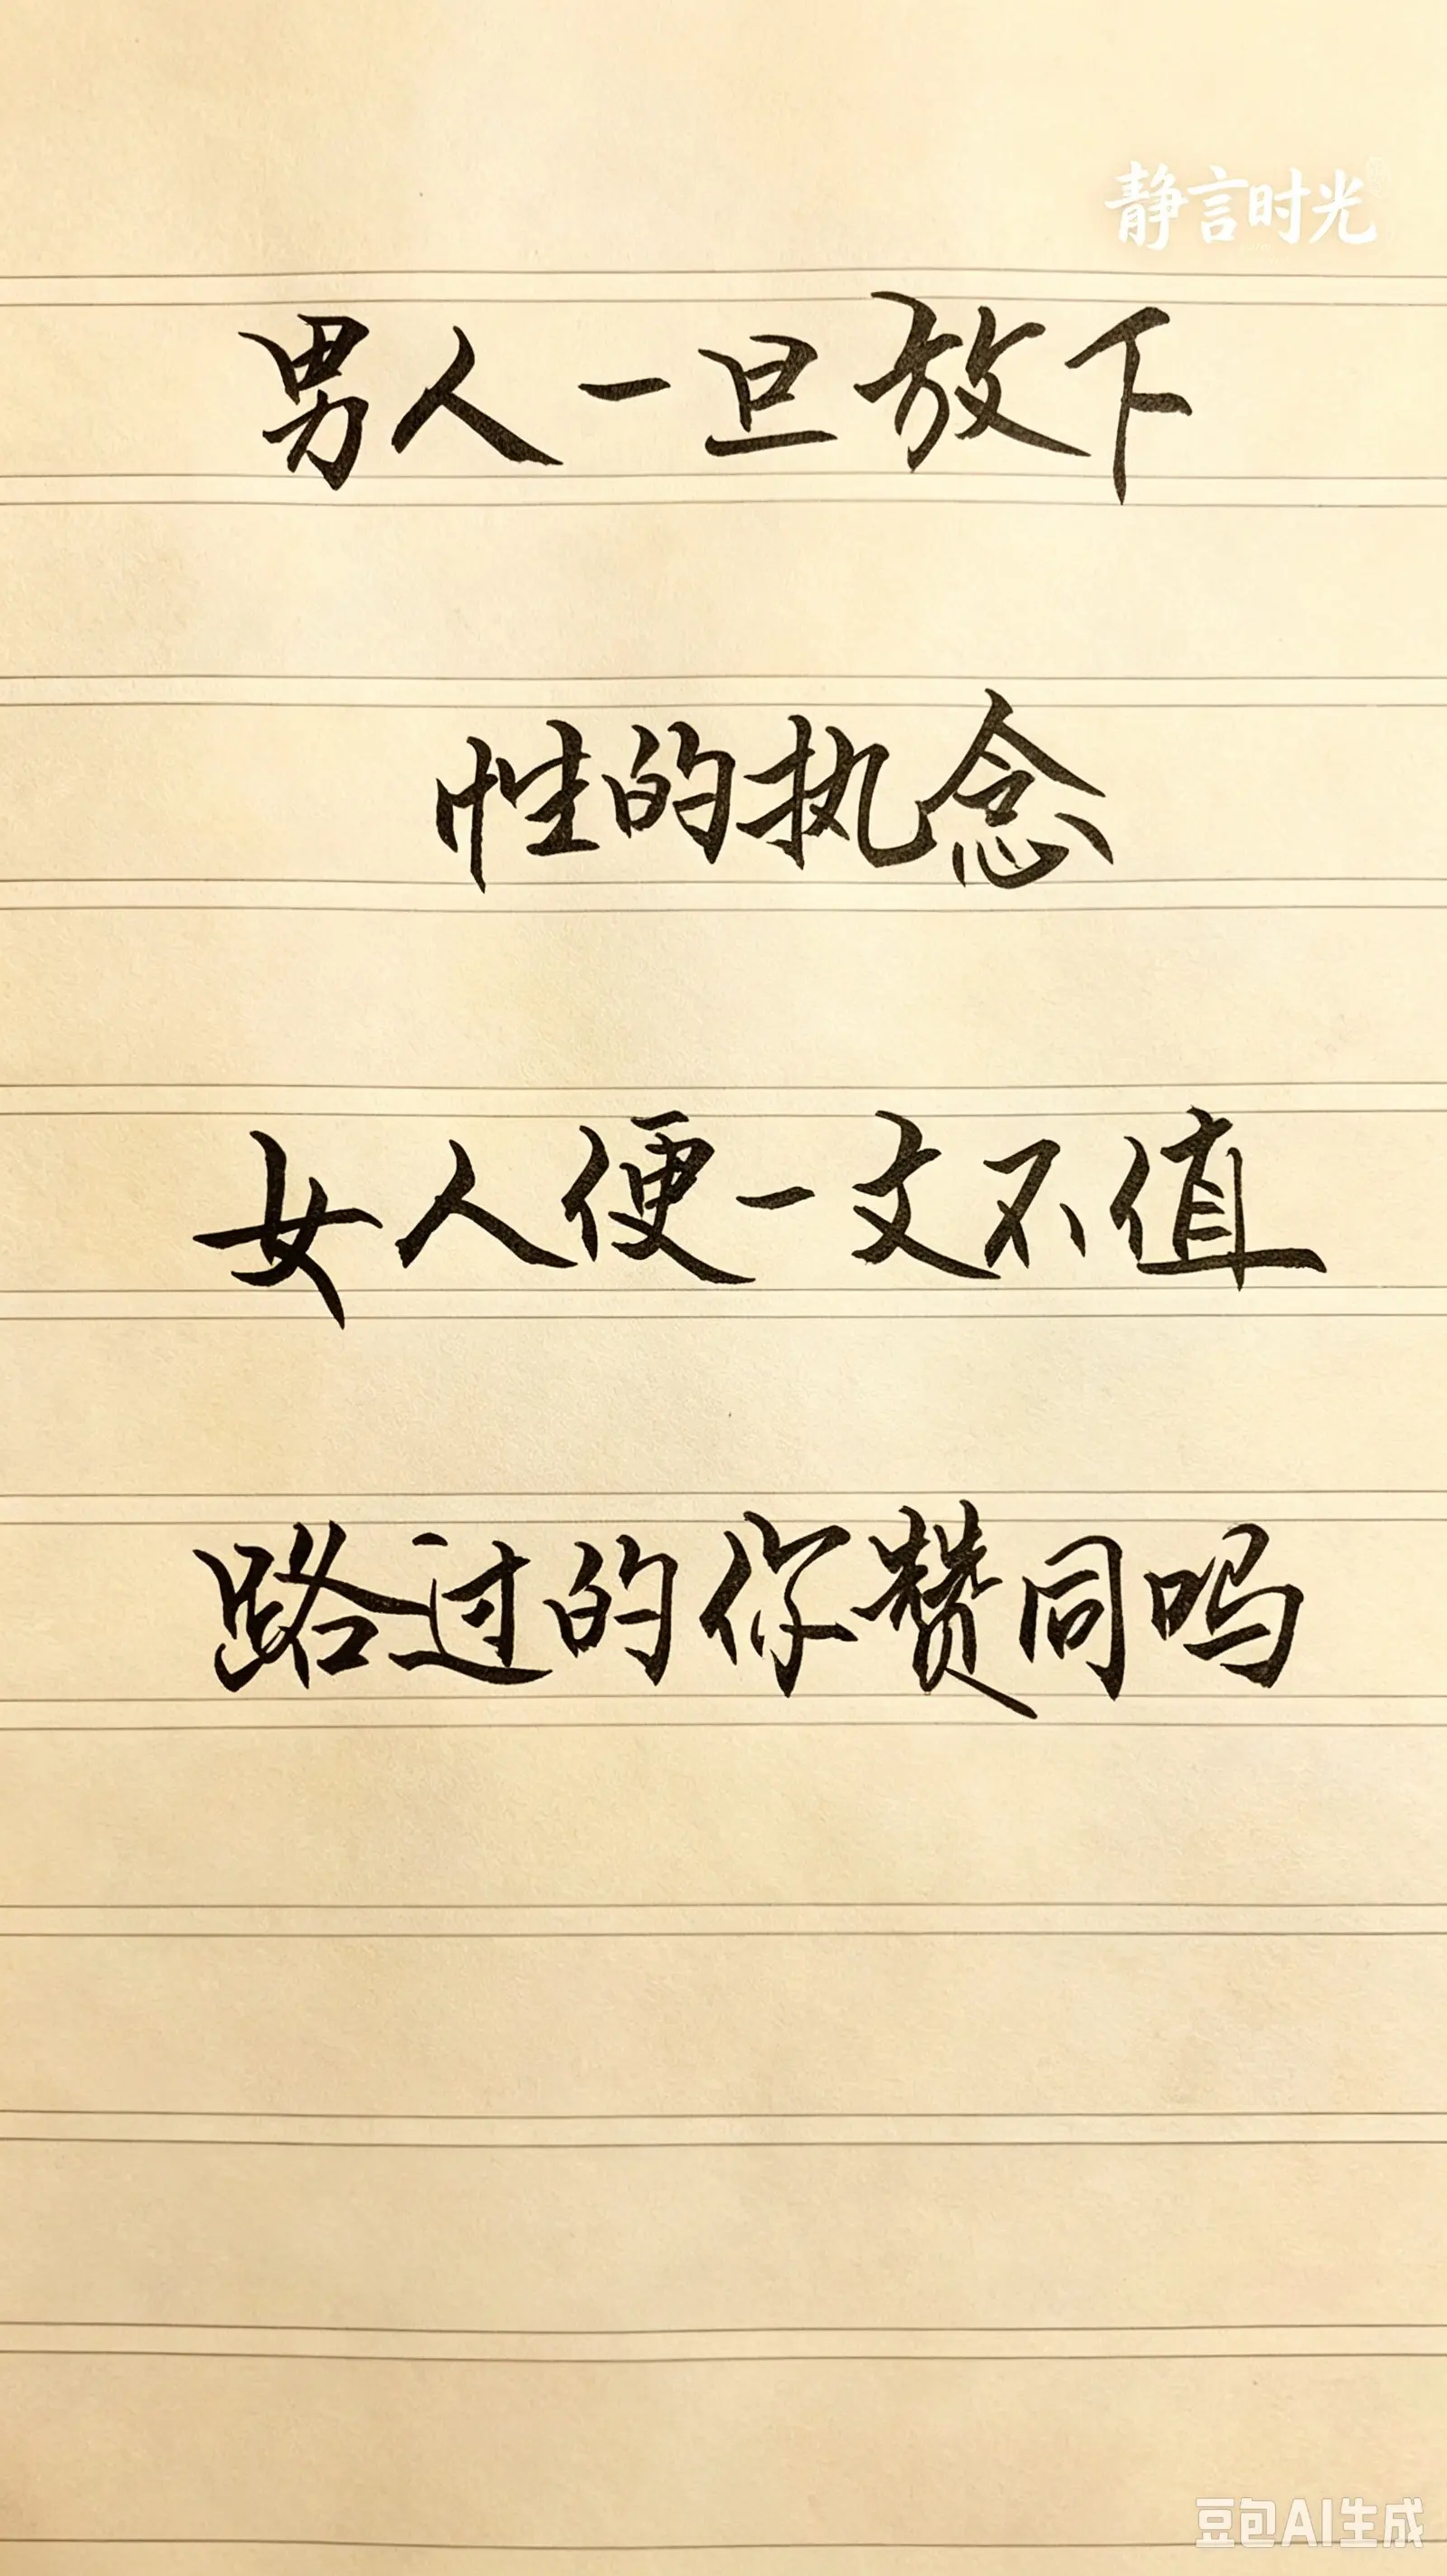 静言时光
男人一旦放下
性的执念
女人便一文不值
路过的你赞同吗
豆包AI生成